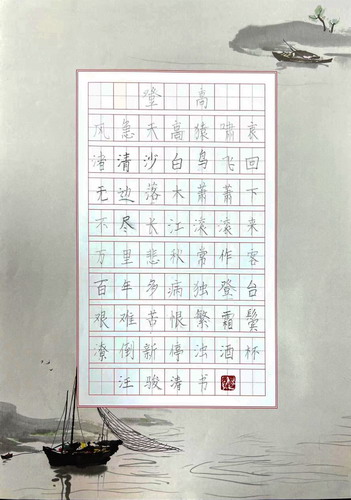 登高
风急天高猿啸哀
渚清沙白鸟飞回
无边落木萧萧下
不尽长江滚滚来
万里悲秋常作客
百年多病独登台
艰难苦恨繁霜鬓
潦倒新停浊酒杯
汪骏涛书